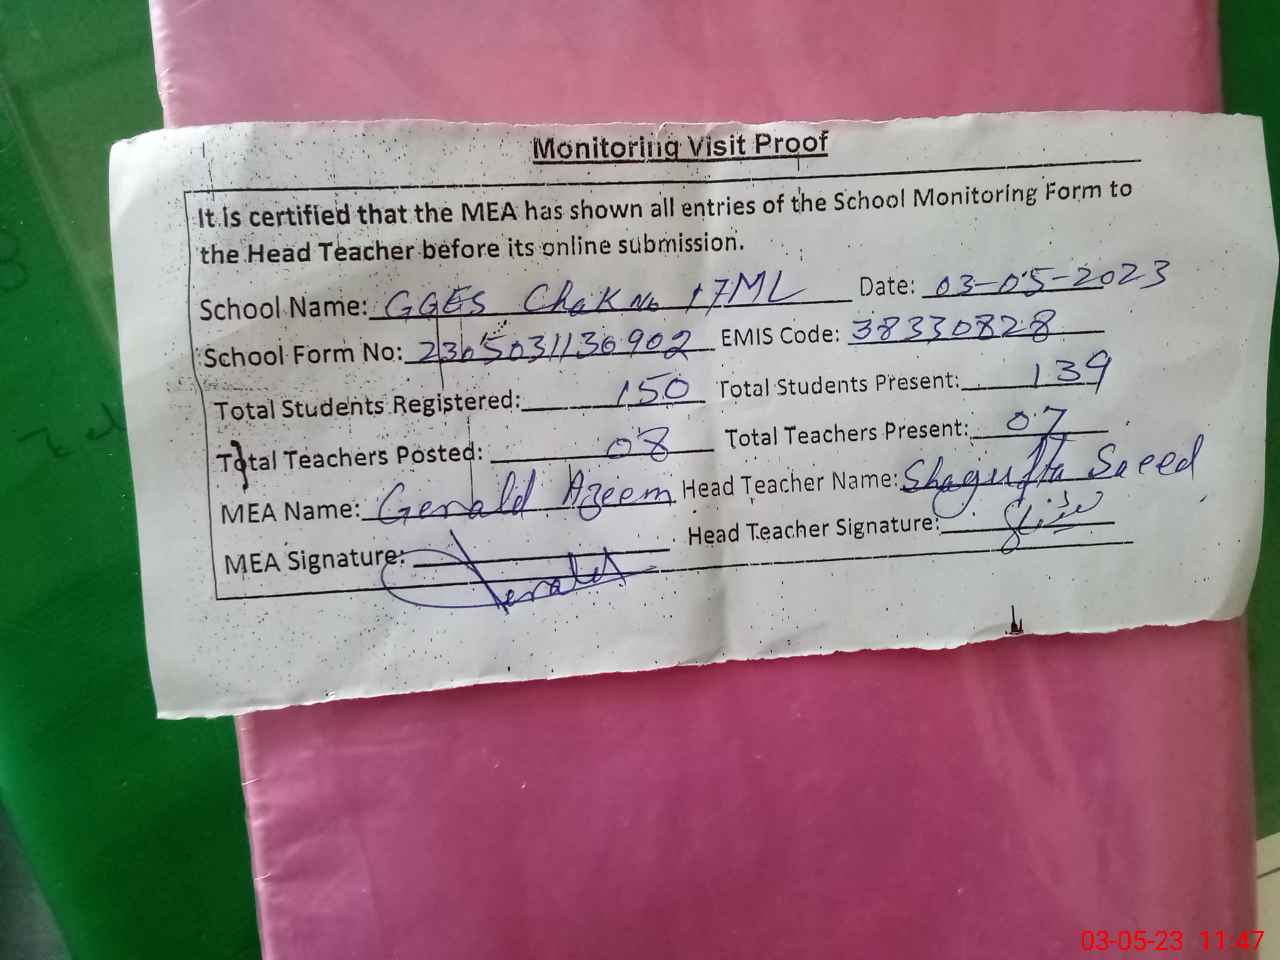 Monitoring Visit Proof
It is certified that the MEA has shown all entries of the School Monitoring Form to
the Head Teacher before its online submission.
School Name: GGES Chak No 17ML Date: 03-05-2023
School Form No: 2305031130902 EMIS Code: 38330828
Total Students Registered: 150 Total Students Present: 139
Total Teachers Posted: 08 Total Teachers Present: 07
MEA Name: Gerald Azeem Head Teacher Name: Shagufta Saeed
MEA Signature: Gerald Head Teacher Signature:
03-05-23 11:47